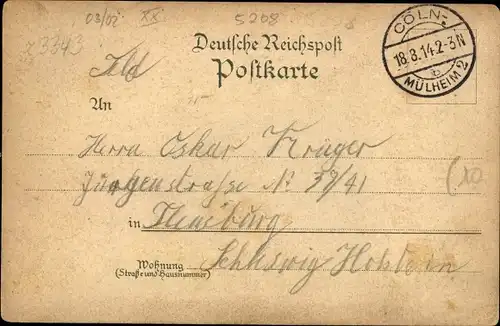 03/02 XX 5208
z 3343
CÖLN-
18.8.14.2-3N
MÜLHEIM 2
Deutsche Reichspost
Feld
Postkarte
An
Herrn Oskar Krüger
Jürgenstraße No 39/41
in Flensburg
Wohnung
(Straße und Hausnummer)
Schleswig Holstein